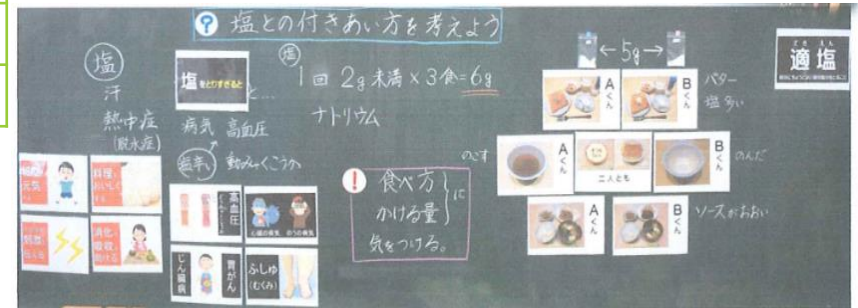 ? 塩との付きあい方を考えよう
塩
汗
熱中症
(脱水症)
元気
料理を
おいしく
する
刺激を
伝える
消化と
吸収を
助ける
塩をとりすぎると
と…
病気 高血圧
塩辛い 動みゃくこうか
高血圧
心臓の病気
のうの病気
じん臓病
胃がん
ふしゅ
(むくみ)
塩
1回 2g未満×3食=6g
ナトリウム
! 食べ方
かける量
に
気をつける。
←5g→
Aくん
Bくん
バター
塩多い
のこす
Aくん
二人とも
Bくん
のんだ
Aくん
Bくん
ソースがおおい
適塩